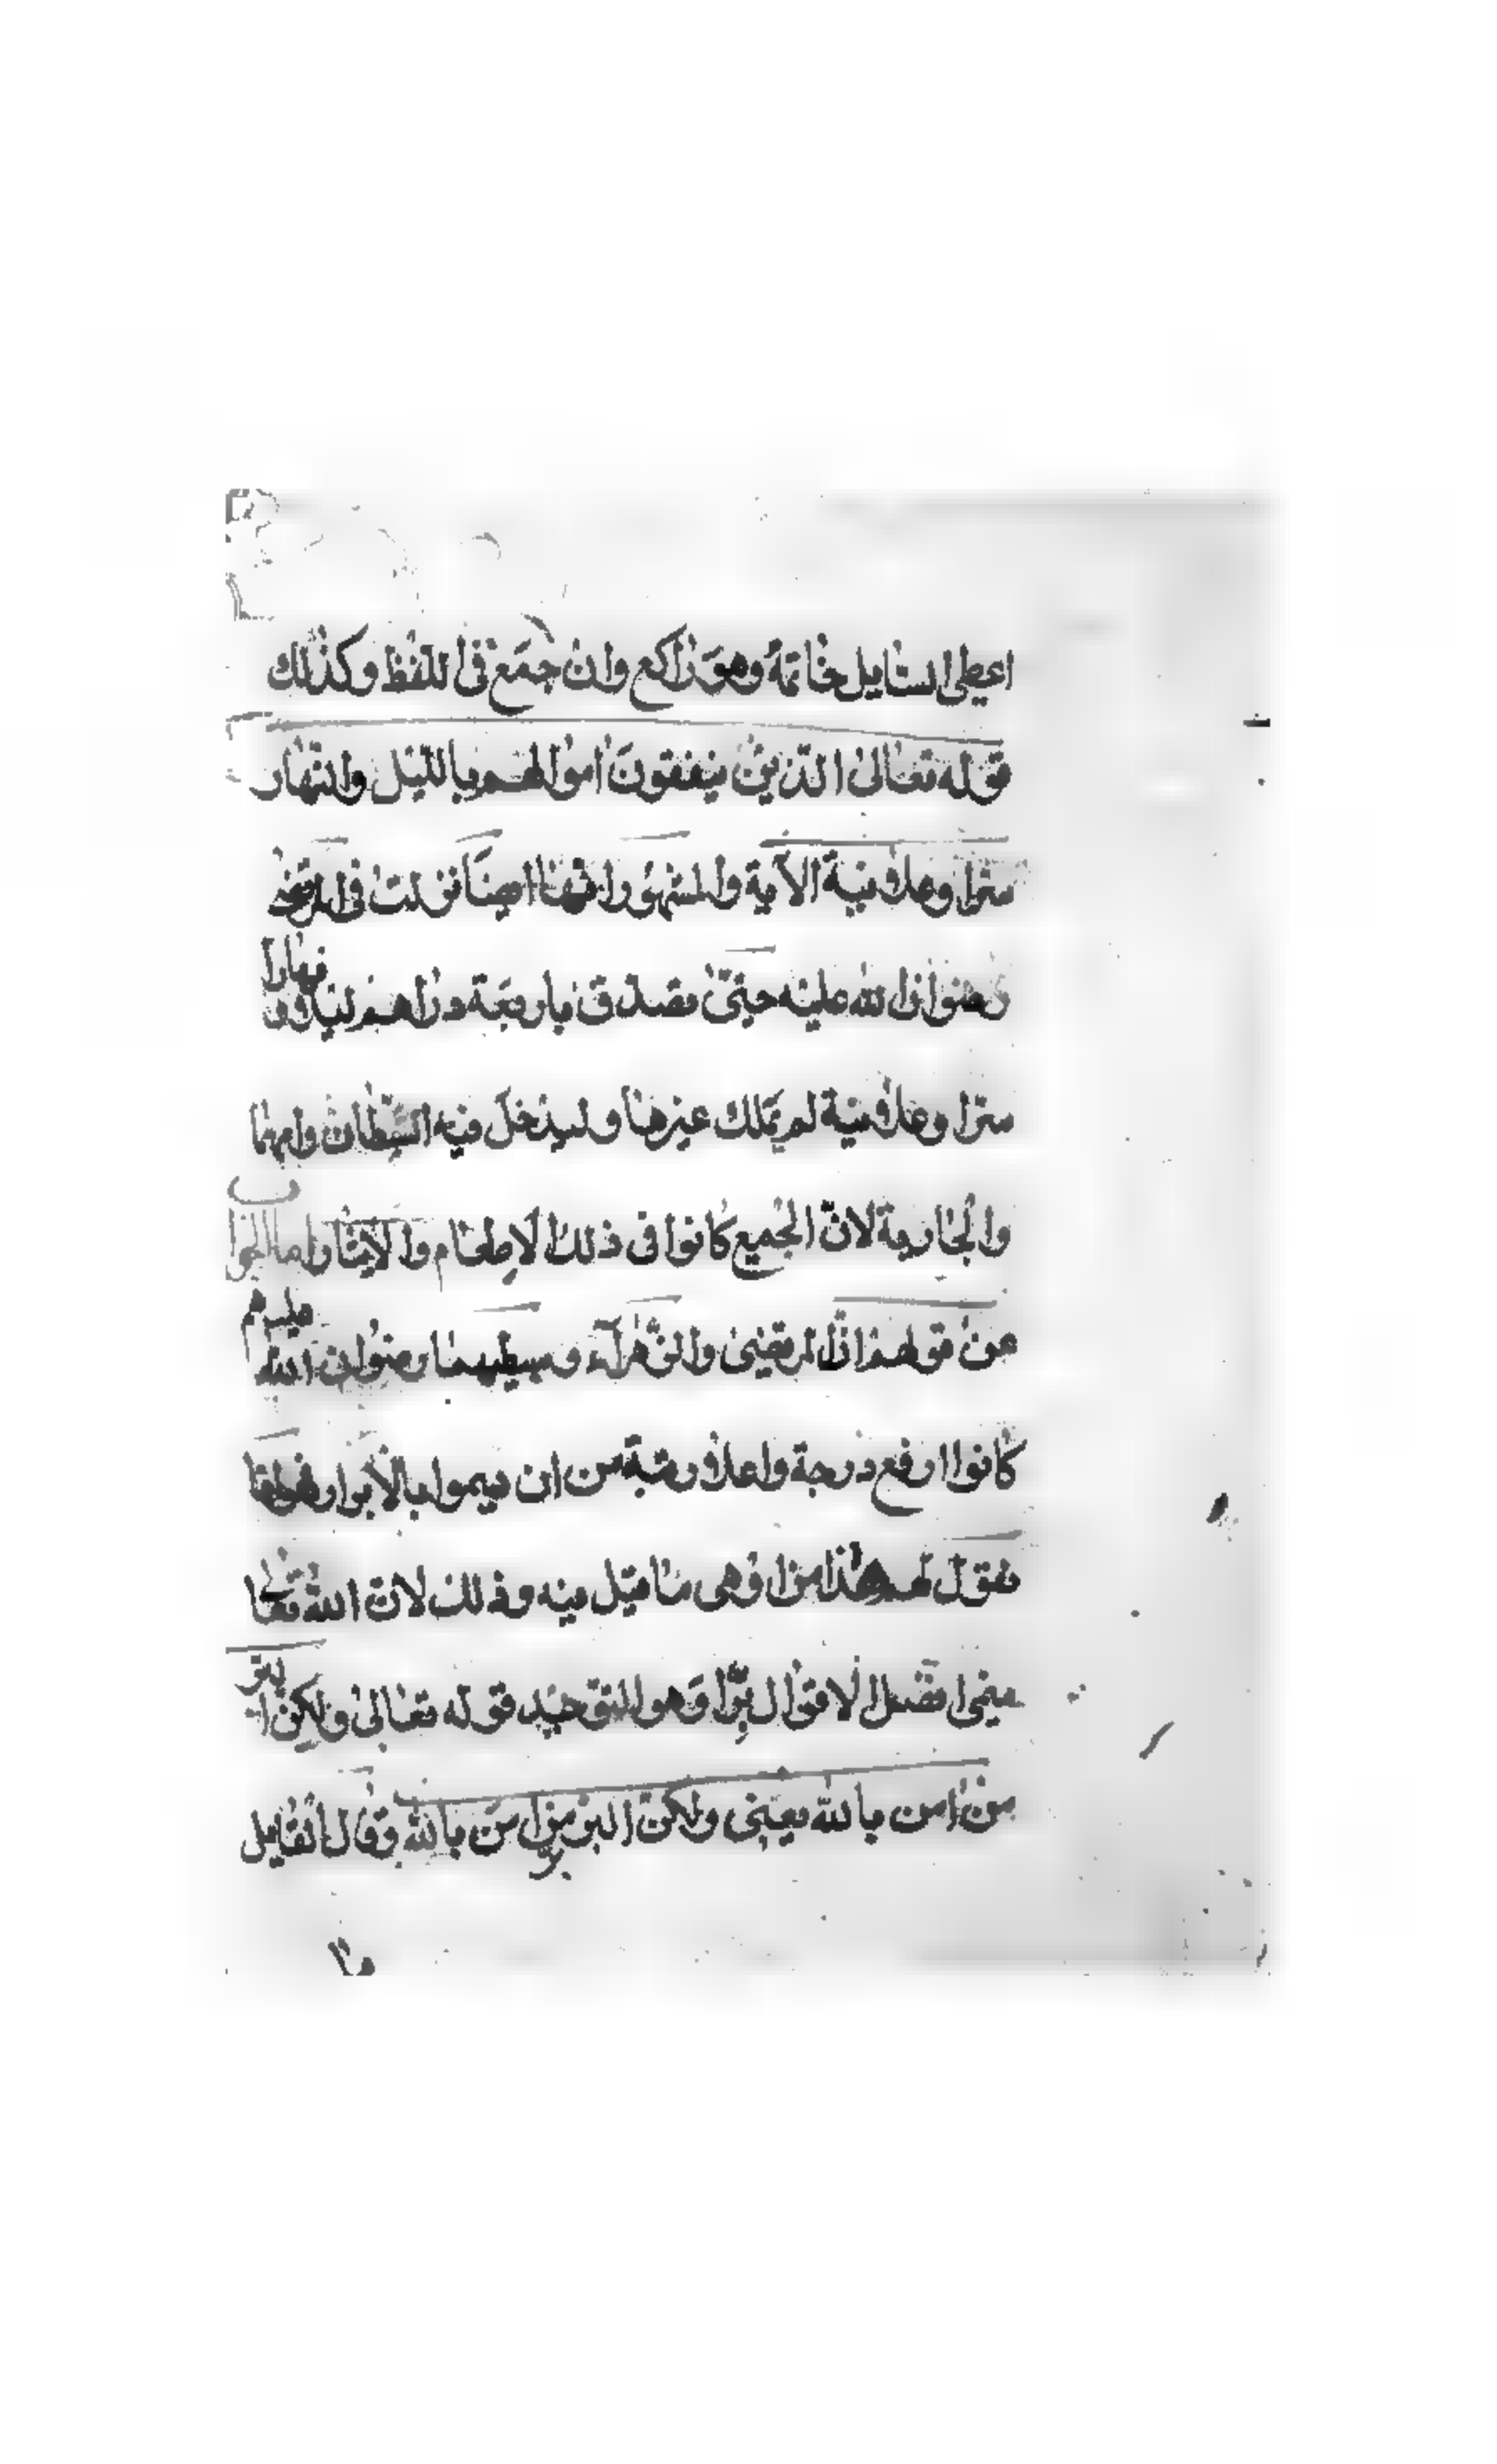 اعطى السائل خاتمه وهو راكع وان جمع في اللفظ وكذلك
قوله تعالى الذين ينفقون اموالهم بالليل والنهار
سرا وعلانية الآية والمشهور انها ايضا نزلت في المرتضى
رضوان الله عليه حتى تصدق باربعة دراهم ليلا و نهارا
سرا وعلانية لم يملك غيرها وليدخل فيه السبطان وامهما
والجارية لان الجميع كانوا في ذلك الاطعام والايثار اما الجواب
عن قولهم ان المرتضى والزهرآء وسبطيهما رضوان الله عليهم
كانوا ارفع درجة واعلا رتبة من ان يسموا بالابرار فهو انا
نقول لهم هذا من اوهى ما قيل فيه وذلك لان الله تعالى
سمى افضل الاقوال برا وهو التوحيد قوله تعالى ولكن البر
من امن بالله يعني ولكن البر بر من امن بالله وقال القايل